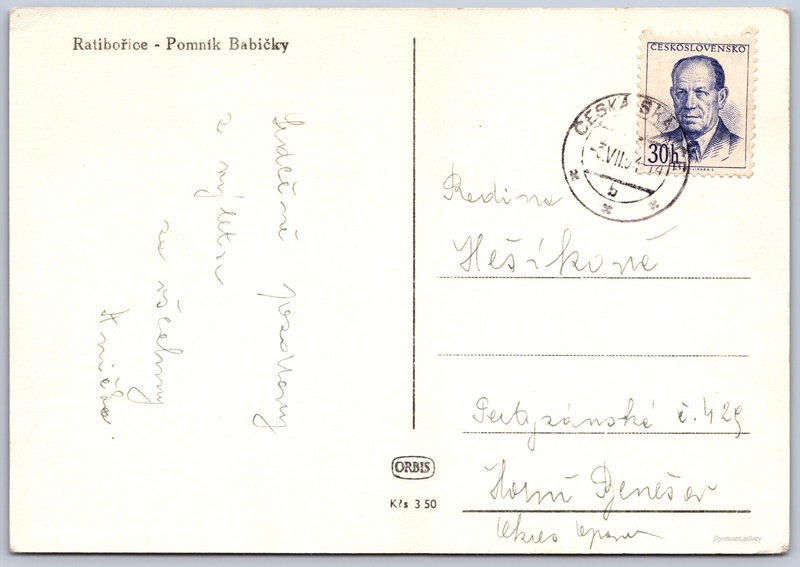 Ratibořice - Pomník Babičky
Srdečné pozdravy
z výletu
za všechny
Anička.
ČESKOSLOVENSKO
30h
ČESKÁ SKALICE
b
Rodina
Hešíkově
Partyzánská č. 429
Horní Benešov
Okres Opava
ORBIS
Kčs 3 50
[postcard.gallery